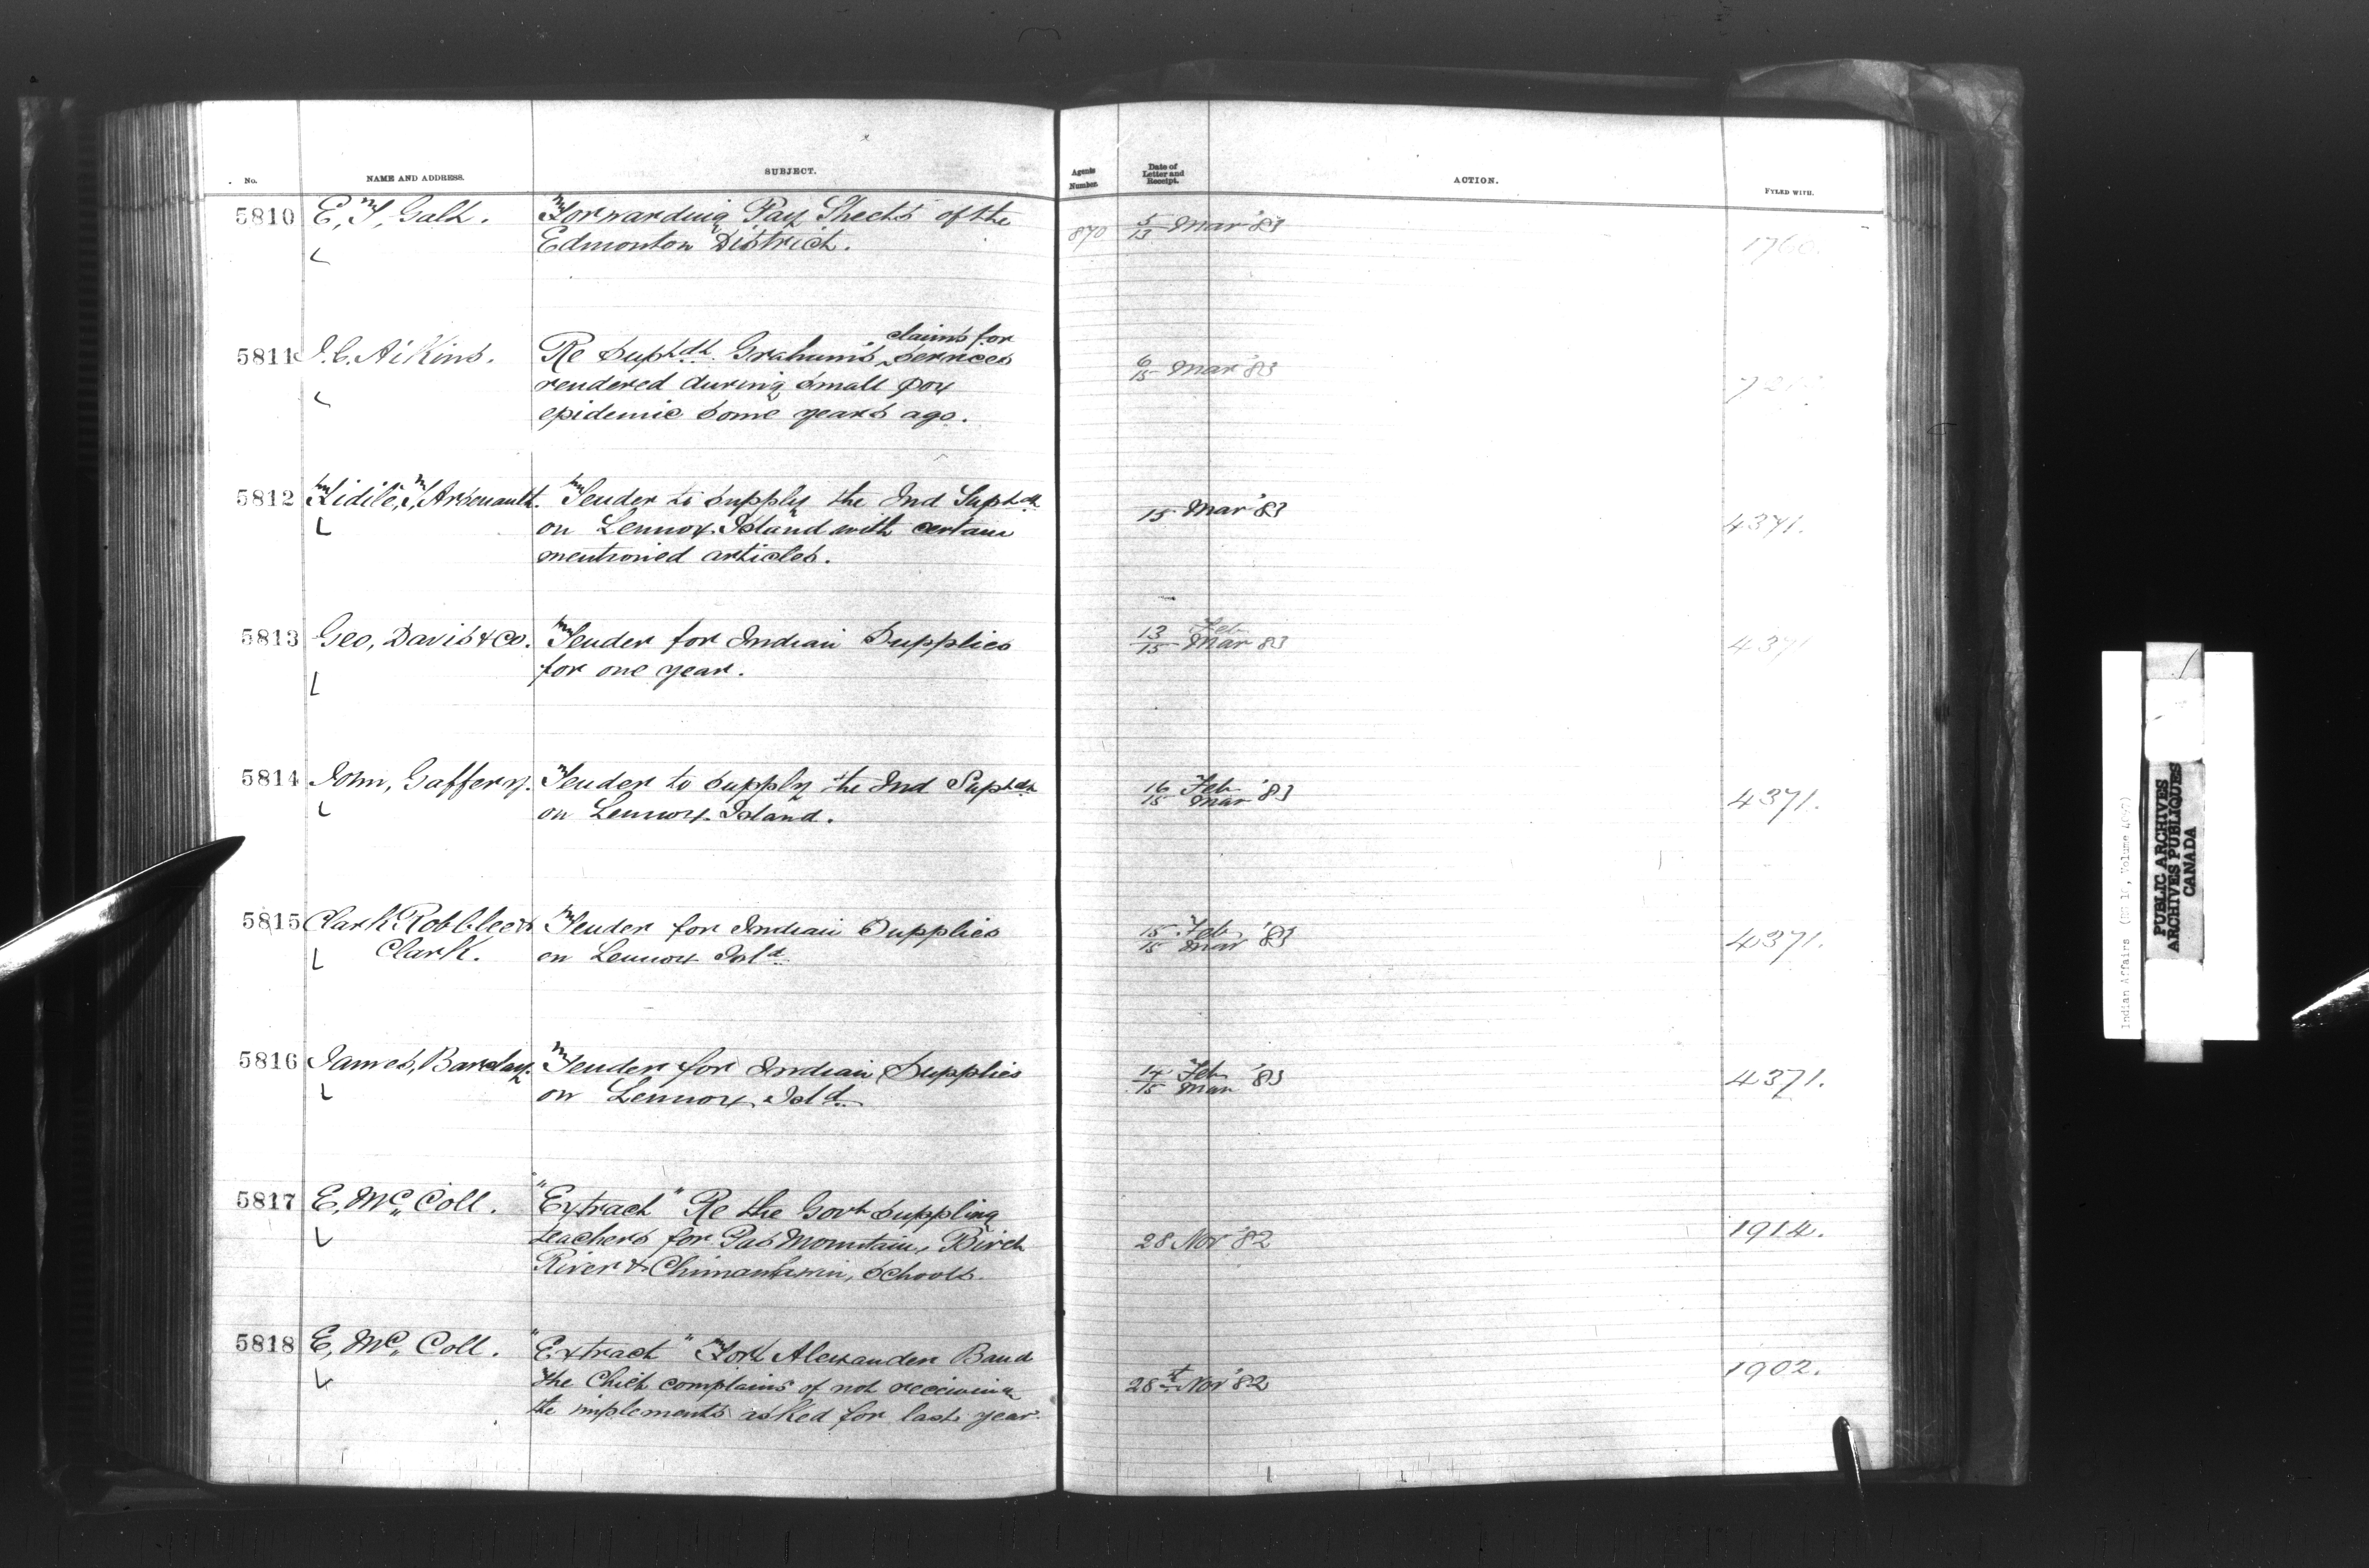 No. NAME AND ADDRESS. SUBJECT. Agents Number. Date of Letter and Receipt. ACTION. FYLED WITH.
5810 E, T, Galt. Forwarding Pay Sheets of the
Edmonton District. 870 5/13 Mar '83 1760.
claims for
5811 J. C. Aikins. Re Supt dt Graham's services 6/15 Mar '83
rendered during small pox
epidemic some years ago.
5812 Arsenault. Tender to supply the Ind Supt dt 15 Mar '83
on Lennox Island with certain 4371.
mentioned articles.
5813 Geo, Davis & Co. Tender for Indian Supplies 13/15 Feb Mar 83 4371
for one year.
5814 John, Gaffery. Tender to supply the Ind Supt dt 16/15 Feb Mar '83 4371.
on Lennox Island.
5815 Clark Robblee & Tender for Indian Supplies 15/15 Feb Mar '83 4371.
Clark. on Lennox Isld
5816 James, Barclay. Tender for Indian Supplies 14/15 Feb Mar '83 4371.
on Lennox Isld
5817 E, Mc, Coll. "Extract" Re the Govt suppling
teachers for Pas Mountain, Birch 28 Nov '82 1914.
River & schools.
5818 E, Mc, Coll. "Extract" Fort Alexander Band
the Chief complains of not receiving 28 Nov '82 1902.
the implements asked for last year.
PUBLIC ARCHIVES
ARCHIVES PUBLIQUES
CANADA
Indian Affairs